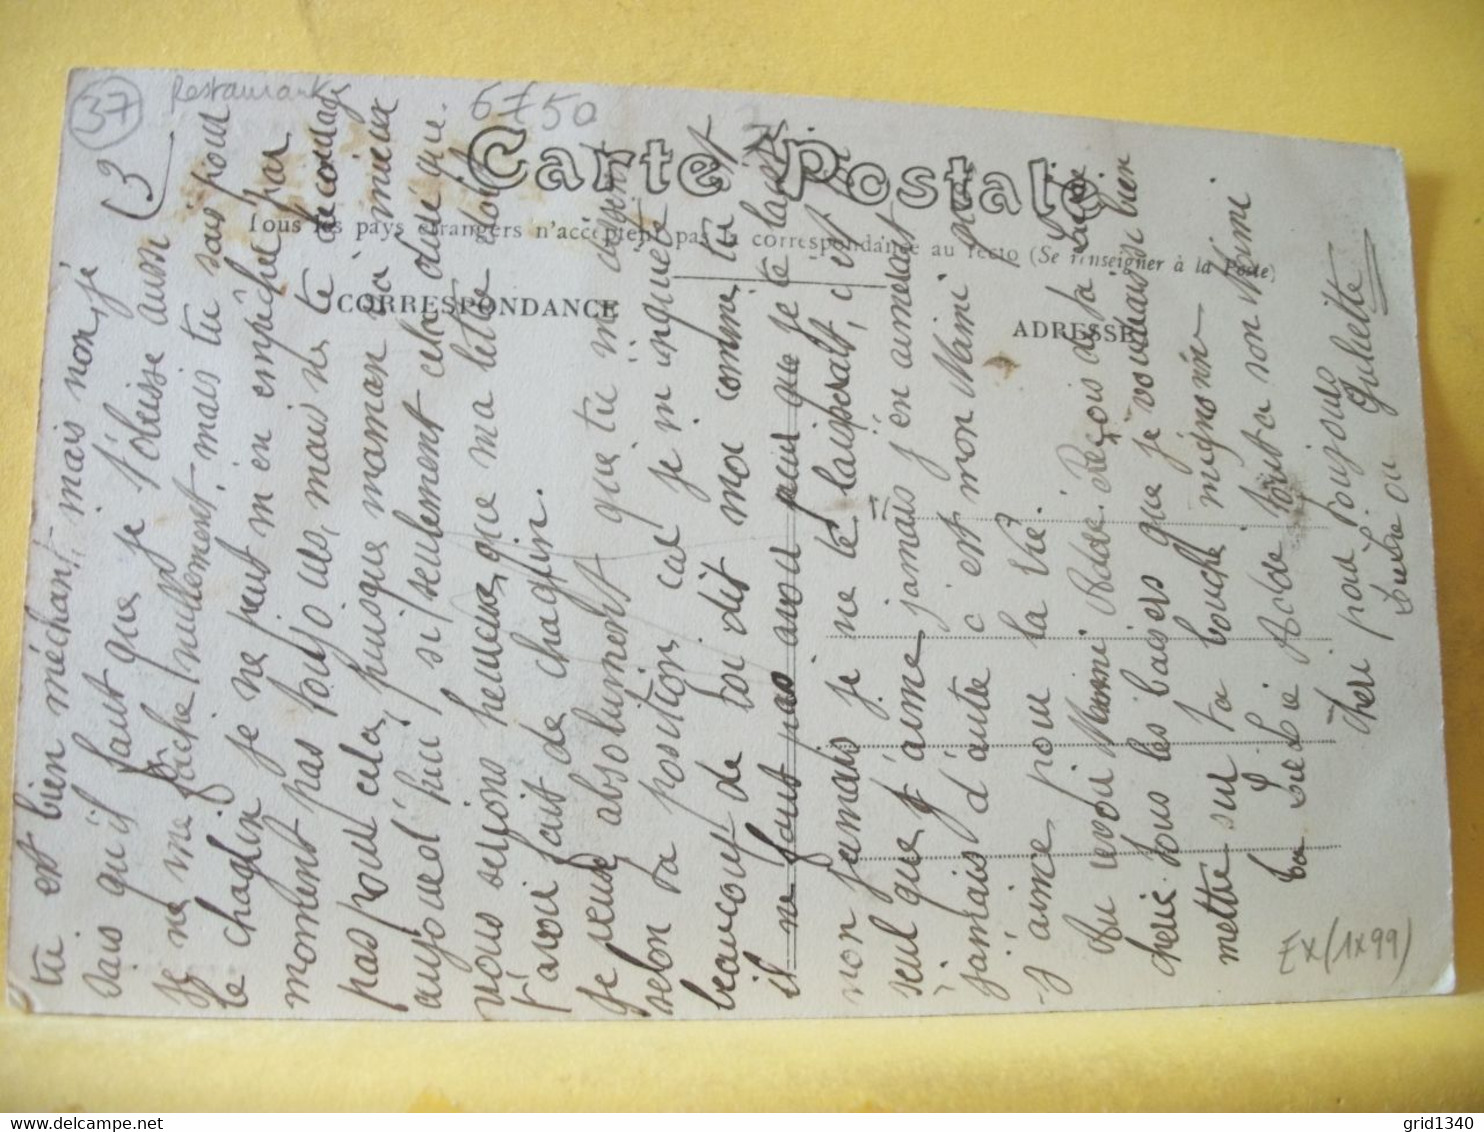 37
Restaurant
6750
Carte Postale
Tous les pays étrangers n'acceptent pas la correspondance au recto (Se renseigner à la Poste)
CORRESPONDANCE
ADRESSE
(3
tu est bien méchant, mais non, je
sais qu'il faut que je t'obeisse aussi
je ne me fâche nullement, mais tu sais pour
le chagrin je ne peut m'en empêcher par
moment pas toujours, mais ne te décourage
pas pour cela, puisque maman va mieux
aujourd'hui, si seulement cela
nous serions heureux, que ma lettre
t'avoir fait de chagrin.
Je veux absolument que tu m'
selon ta position car je m'inquiete
beaucoup de toi dit moi comme tu
il ne faut pas avoir peur que je te
non jamais je ne te laisserait, c'est
seul que j'aime jamais j'en aimerait
jamais d'autre c'est mon Mimi
j'aime pour la vie.
Au revoir Mimi Adoré. Reçois de ta
cherie tous les baisers que je voudrais bien
mettre sur ta bouche mignonne
ta Adoré tout a son Mimi
cheri pour toujours
Juliette
EX (1x99)
grid1340